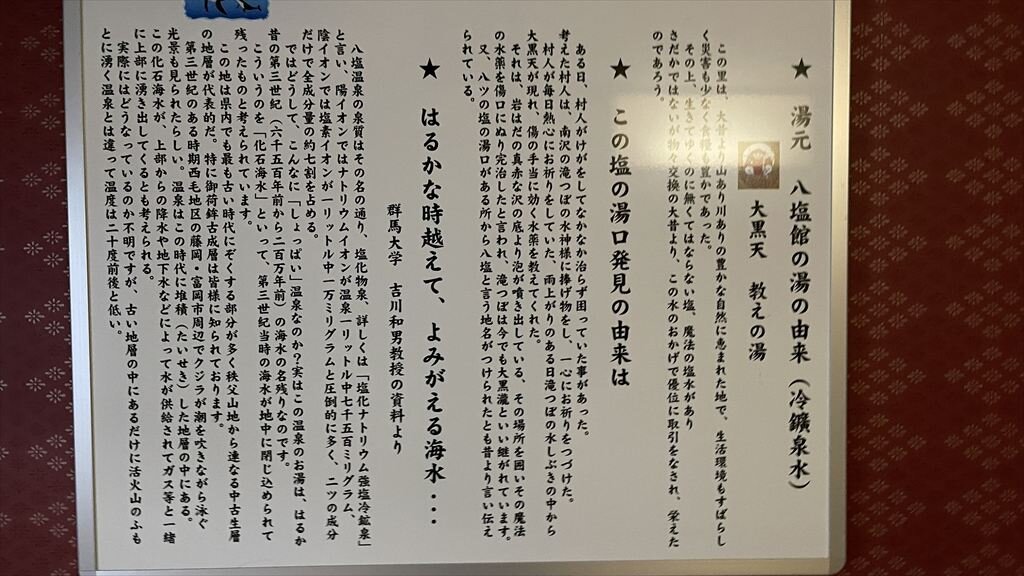 ★ 湯元 八塩館の湯の由来（冷鑛泉水）
大黒天 教えの湯
この里は、大昔より山あり川ありの豊かな自然に恵まれた地で、生活環境もすばらし
く災害も少なく食糧も豊かであった。
その上、生きてゆくのに無くてはならない塩、魔法の塩水があり
さだかではないが物々交換の大昔より、この水のおかげで優位に取引をなされ、栄えた
のであろう。
★ この塩の湯口発見の由来は
ある日、村人がけがをしてなかなか治らず困っていた事があった。
考えた村人は、南沢の滝つぼの水神様に捧げ物をし、一心にお祈りをつづけた。
村人が毎日熱心にお祈りをしていた、雨上がりのある日滝つぼの水しぶきの中から
大黒天が現れ、傷の手当に効く水薬を教えてくれた。
それは、岩はだの真赤な沢の底より泡が噴き出している、その場所を囲いその魔法
の水薬を傷口にぬり完治したと言われ、滝つぼは今でも大黒瀧といい継がれています。
又、八ツの塩の湯口がある所から八塩と言う地名がつけられたとも昔より言い伝え
られている。
★ はるかな時越えて、よみがえる海水・・・
群馬大学 吉川和男教授の資料より
八塩温泉の泉質はその名の通り、塩化物泉、詳しくは「塩化ナトリウム強塩冷鉱泉」
と言い、陽イオンではナトリウムイオンが温泉一リットル中七千五百ミリグラム、
陰イオンでは塩素イオンが一リットル中一万ミリグラムと圧倒的に多く、二ツの成分
だけで全成分量の約七割を占める。
ではどうして、こんなに「しょっぱい」温泉なのか？実はこの温泉のお湯は、はるか
昔の第三世紀（六千五百年前から二百万年前）の海水の名残りなのです。
こういうのを「化石海水」といって、第三世紀当時の海水が地中に閉じ込められて
残ったものと考えられています。
この地は県内でも最も古い時代にぞくする部分が多く秩父山地から連なる中古生層
の地層が代表的だ。特に御荷鉾古成層は皆様に知られております。
第三世紀のある時期西毛地区の藤岡・富岡市周辺でクジラが潮を吹きながら泳ぐ
光景も見られたらしい。温泉はこの時代に堆積（たいせき）した地層の中にある。
この化石海水が、上部からの降水や地下水などによって水が供給されてガス等と一緒
に上部に湧き出してくるとも考えられる。
実際にはどうなっているのか不明ですが、古い地層の中にあるだけに活火山のふも
とに湧く温泉とは違って温度は二十度前後と低い。